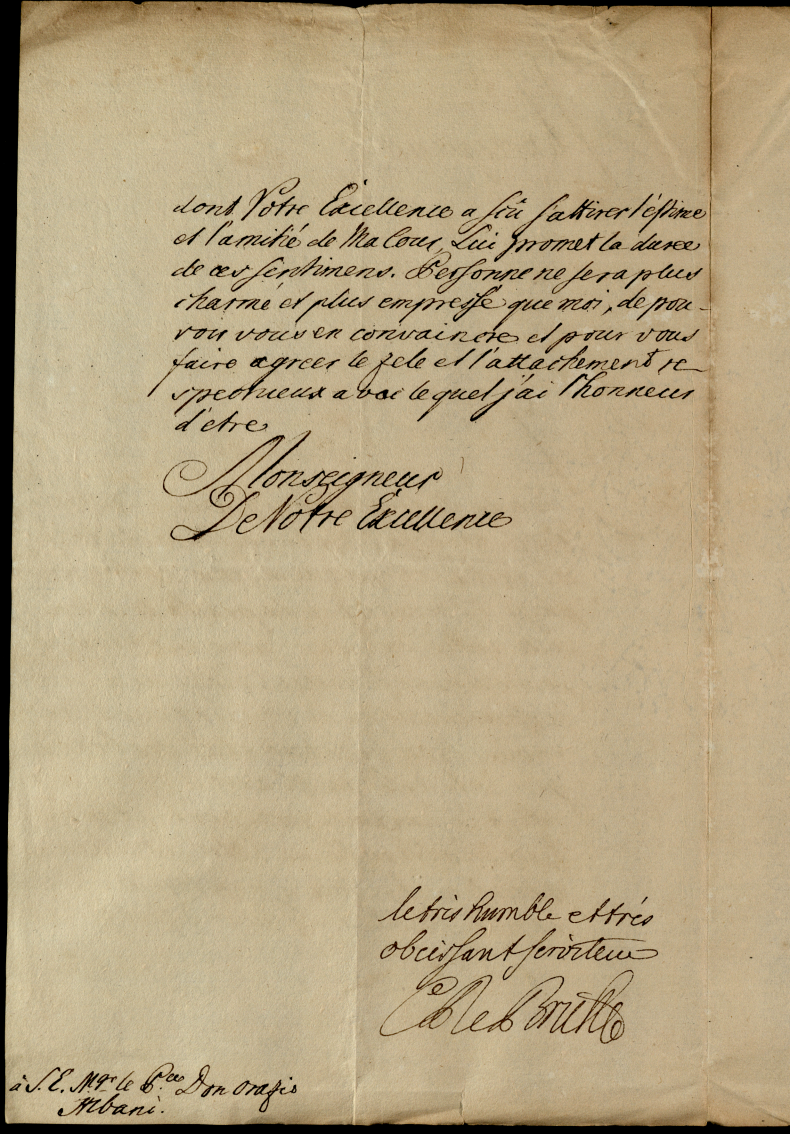 dont Votre Excellence a sçû s'attirer l'éstime
et l'amitié de Ma Cour, Lui promet la durée
de ces sentimens. Personne ne sera plus
charmé et plus empressé que moi, de pou-
voir vous en convaincre et pour vous
faire agréer le zele et l'attachement re-
spectueux avec le quel j'ai l'honneur
d'être
Monseigneur
De Votre Excellence
le très humble et très
obeissant serviteur
de Brühl
à S. E. Mgr le Pce Don Orazio
Albani.